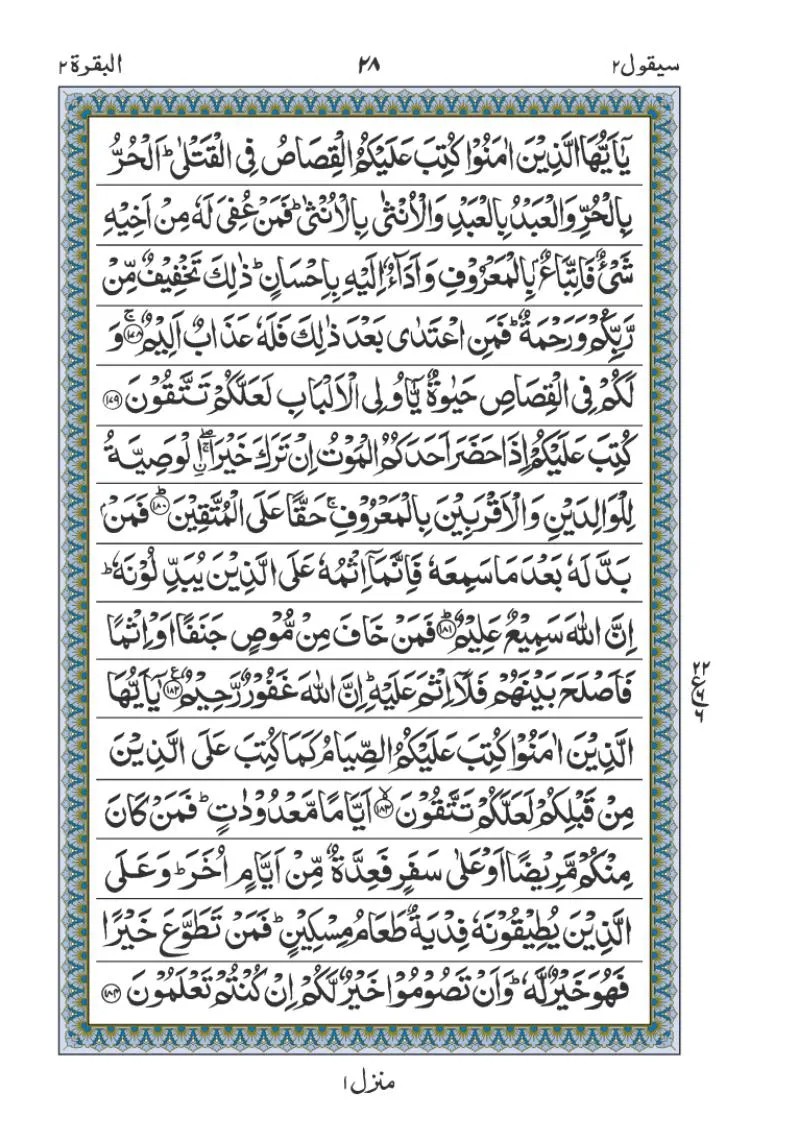 سيقول ٢
٢٨
البقرة ٢
يٰۤاَيُّهَا الَّذِيْنَ اٰمَنُوْا كُتِبَ عَلَيْكُمُ الْقِصَاصُ فِى الْقَتْلٰىؕ اَلْحُرُّ
بِالْحُرِّ وَالْعَبْدُ بِالْعَبْدِ وَالْاُنْثٰى بِالْاُنْثٰىؕ فَمَنْ عُفِىَ لَهٗ مِنْ اَخِيْهِ
شَىْءٌ فَاتِّبَاعٌۢ بِالْمَعْرُوْفِ وَاَدَآءٌ اِلَيْهِ بِاِحْسَانٍؕ ذٰلِكَ تَخْفِيْفٌ مِّنْ
رَّبِّكُمْ وَرَحْمَةٌؕ فَمَنِ اعْتَدٰى بَعْدَ ذٰلِكَ فَلَهٗ عَذَابٌ اَلِيْمٌۚ ﴿١٧٨﴾ وَ
لَكُمْ فِى الْقِصَاصِ حَيٰوةٌ يّٰۤاُولِى الْاَلْبَابِ لَعَلَّكُمْ تَتَّقُوْنَ ﴿١٧٩﴾
كُتِبَ عَلَيْكُمْ اِذَا حَضَرَ اَحَدَكُمُ الْمَوْتُ اِنْ تَرَكَ خَيْرَاۖۚ ۨالْوَصِيَّةُ
لِلْوَالِدَيْنِ وَالْاَقْرَبِيْنَ بِالْمَعْرُوْفِۚ حَقًّا عَلَى الْمُتَّقِيْنَؕ ﴿١٨٠﴾ فَمَنْۢ
بَدَّلَهٗ بَعْدَ مَا سَمِعَهٗ فَاِنَّمَاۤ اِثْمُهٗ عَلَى الَّذِيْنَ يُبَدِّلُوْنَهٗؕ
اِنَّ اللّٰهَ سَمِيْعٌ عَلِيْمٌؕ ﴿١٨١﴾ فَمَنْ خَافَ مِنْ مُّوْصٍ جَنَفًا اَوْ اِثْمًا
فَاَصْلَحَ بَيْنَهُمْ فَلَاۤ اِثْمَ عَلَيْهِؕ اِنَّ اللّٰهَ غَفُوْرٌ رَّحِيْمٌ ﴿١٨٢﴾ يٰۤاَيُّهَا
الَّذِيْنَ اٰمَنُوْا كُتِبَ عَلَيْكُمُ الصِّيَامُ كَمَا كُتِبَ عَلَى الَّذِيْنَ
مِنْ قَبْلِكُمْ لَعَلَّكُمْ تَتَّقُوْنَۙ ﴿١٨٣﴾ اَيَّامًا مَّعْدُوْدٰتٍؕ فَمَنْ كَانَ
مِنْكُمْ مَّرِيْضًا اَوْ عَلٰى سَفَرٍ فَعِدَّةٌ مِّنْ اَيَّامٍ اُخَرَؕ وَعَلَى
الَّذِيْنَ يُطِيْقُوْنَهٗ فِدْيَةٌ طَعَامُ مِسْكِيْنٍؕ فَمَنْ تَطَوَّعَ خَيْرًا
فَهُوَ خَيْرٌ لَّهٗؕ وَاَنْ تَصُوْمُوْا خَيْرٌ لَّكُمْ اِنْ كُنْتُمْ تَعْلَمُوْنَ ﴿١٨٤﴾
منزل ١